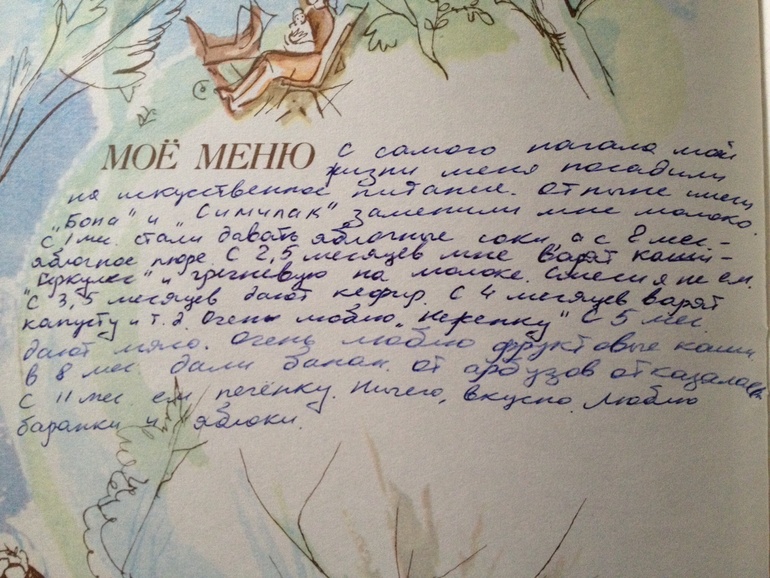 МОЁ МЕНЮ С самого начала моей
жизни меня посадили
на искусственное питание. Отныне смеси
"Бона" и "Симилак" заменили мне молоко.
С 1 мес. стали давать яблочные соки, а с 2 мес. -
яблочное пюре. С 2,5 месяцев мне варят каши -
"Геркулес" и гречневую на молоке. Смеси я не ем.
С 3,5 месяцев дают кефир. С 4 месяцев варят
капусту и т.д. Очень люблю С 5 мес.
дают мясо. Очень люблю фруктовые каши.
В 8 мес. дали банан. От арбузов отказалась.
С 11 мес ем печёнку. Ничего, вкусно. Люблю
баранки и яблоки.